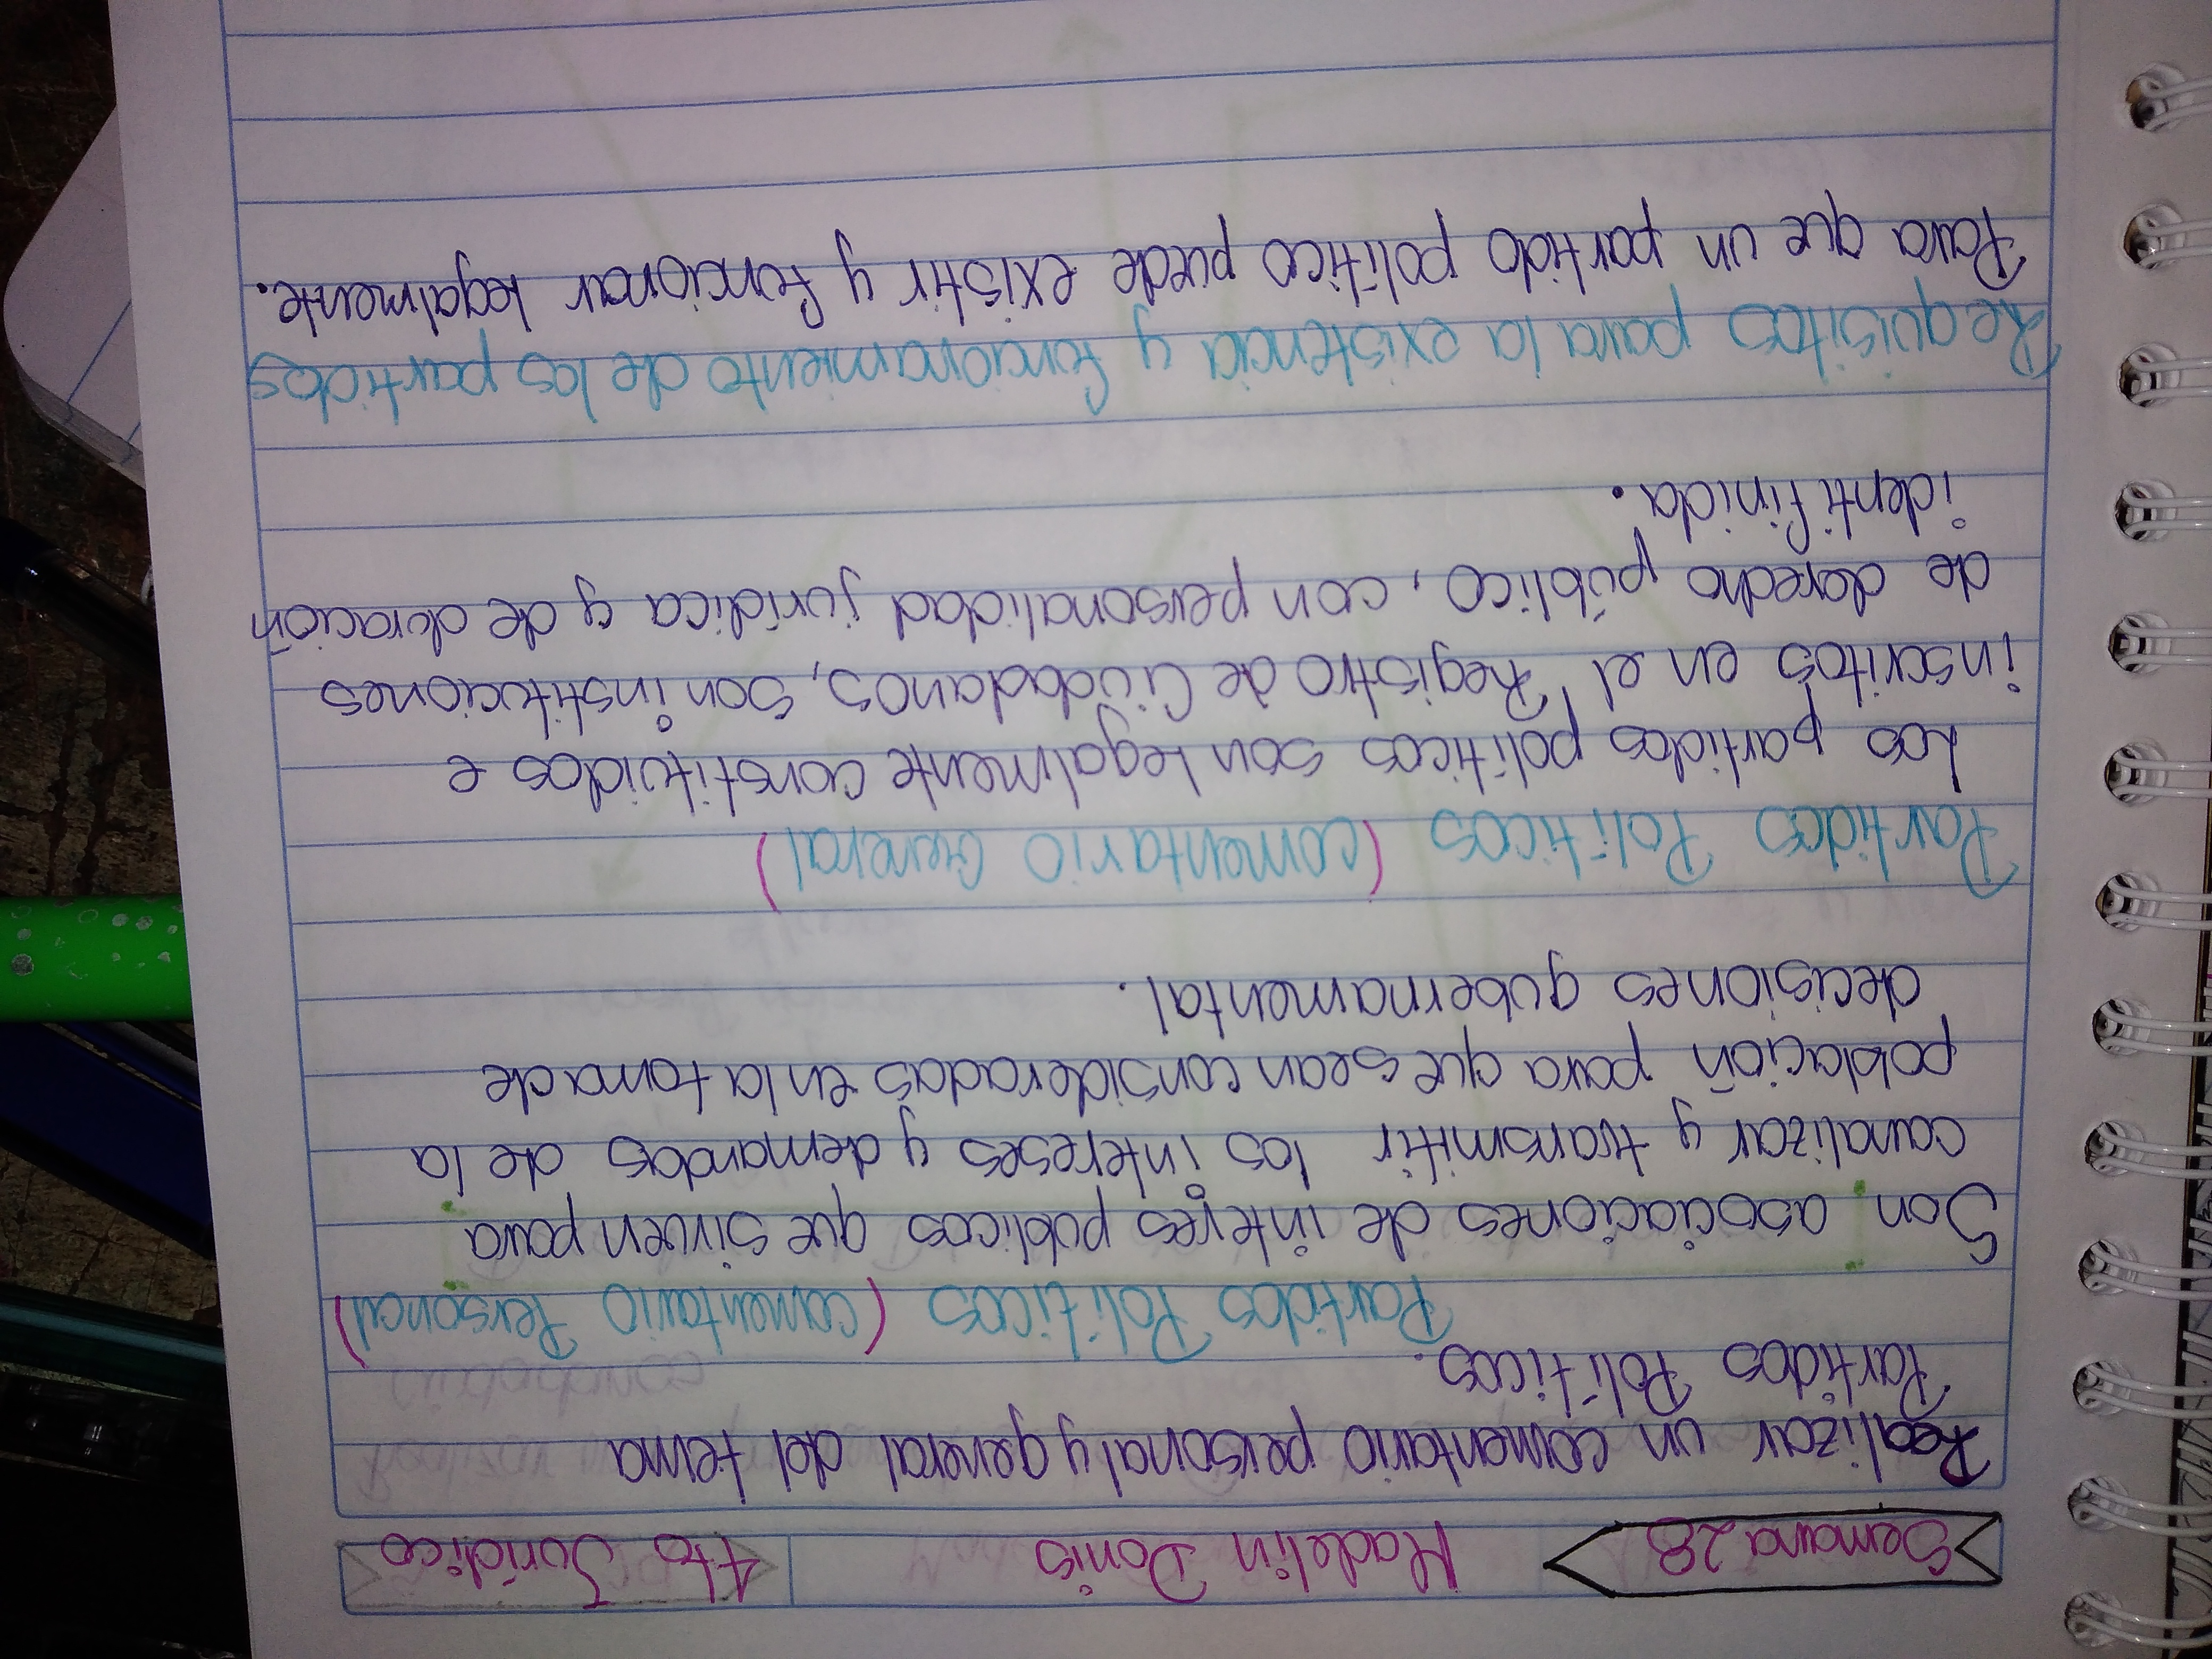 Semana 28 Madelin Donis 4to Jurídico
Realizar un comentario personal y general del tema
Partidos Políticos.
Partidos Políticos (comentario Personal)
Son asociaciones de interés públicos que sirven para
canalizar y transmitir los intereses y demandas de la
población para que sean consideradas en la toma de
decisiones gubernamental.
Partidos Políticos (comentario General)
Los partidos políticos son legalmente constituidos e
inscritos en el Registro de Ciudadanos, son instituciones
de derecho público, con personalidad jurídica y de duración
identifinida.
Requisitos para la existencia y funcionamiento de los partidos
Para que un partido político puede existir y funcionar legalmente.